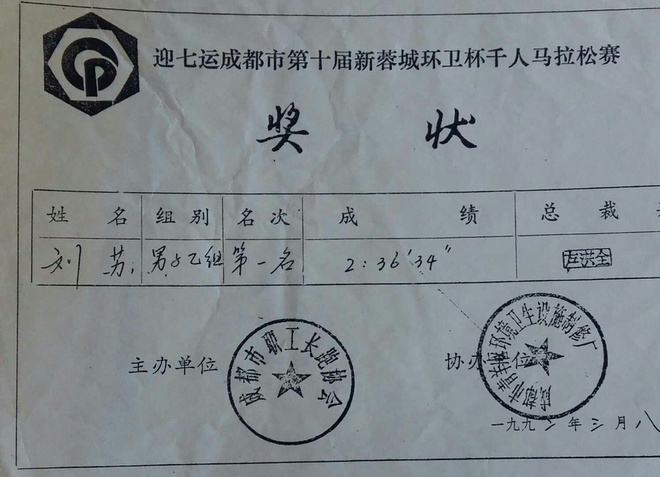 迎七运成都市第十届新蓉城环卫杯千人马拉松赛
奖 状
姓 名 组 别 名 次 成 绩 总 裁
刘 苏 男 乙组 第一名 2:36′34″ 洪全
主办单位 成都市职工长跑协会
协办单位 成都市 环境卫生设施制修厂
一九九 年三月八